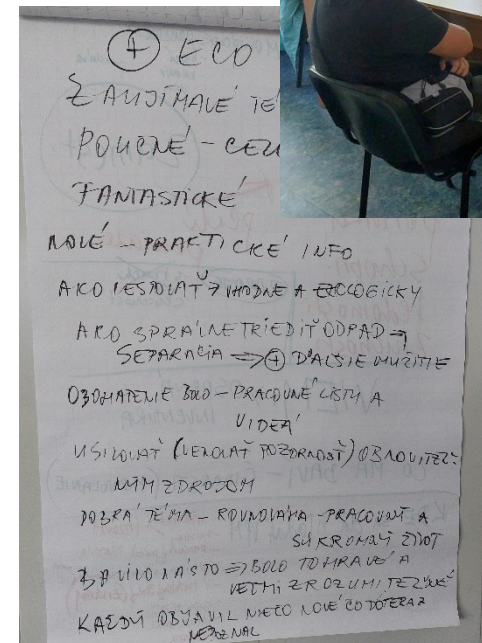 + ECO
ZAUJÍMAVÉ TÉ
POUČNÉ - CEL
FANTASTICKÉ
NOVÉ - PRAKTICKÉ INFO
AKO CESTOVAŤ VHODNE A ECOLOGICKY
AKO SPRÁVNE TRIEDIŤ ODPAD →
SEPARÁCIA ⇒ + ĎALŠIE VYUŽITIE
BOLO - PRACOVNÉ LISTY A
VIDEÁ
(VENOVAŤ POZORNOSŤ) OBNOVITEĽ-
NÝM ZDROJOM
DOBRÁ TÉMA - ROVNOVÁHA - PRACOVNÝ A
SÚKROMNÝ ŽIVOT
BAVILO NÁS TO ⇒ BOLO TO HRAVÉ A
VEĽMI ZROZUMITEĽNÉ
KAŽDÝ OBJAVIL NIEČO NOVÉ ČO DOTERAZ
NEPOZNAL